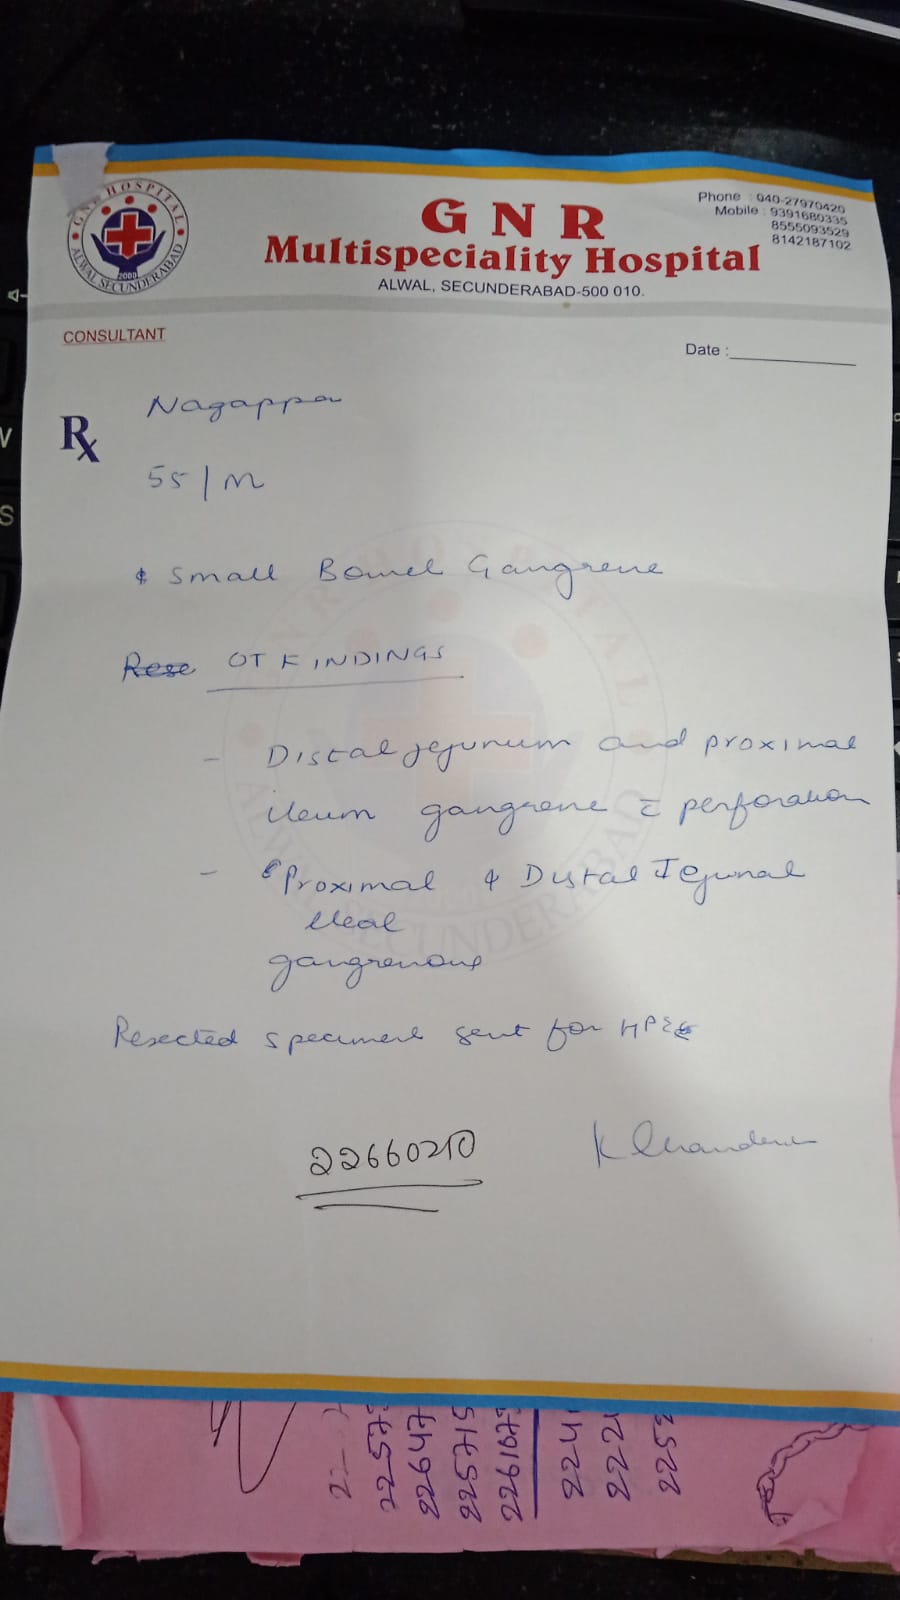 GNR HOSPITAL
ALWAL SECUNDERABAD
2000
GNR
Multispeciality Hospital
ALWAL, SECUNDERABAD-500 010.
Phone : 040-27970420
Mobile : 9391680335
8555093529
8142187102
CONSULTANT
Date :
Rx
Nagappa
55/M
Small Bowel Gangrene
Rese OT FINDINGS
- Distal jejunum and proximal
ileum gangrene c̄ perforation
- Proximal & Distal Jejunal
ileal
gangrenous
Resected specimen sent for HPE
22660210
2257
22647
225715
226107
224
222
225